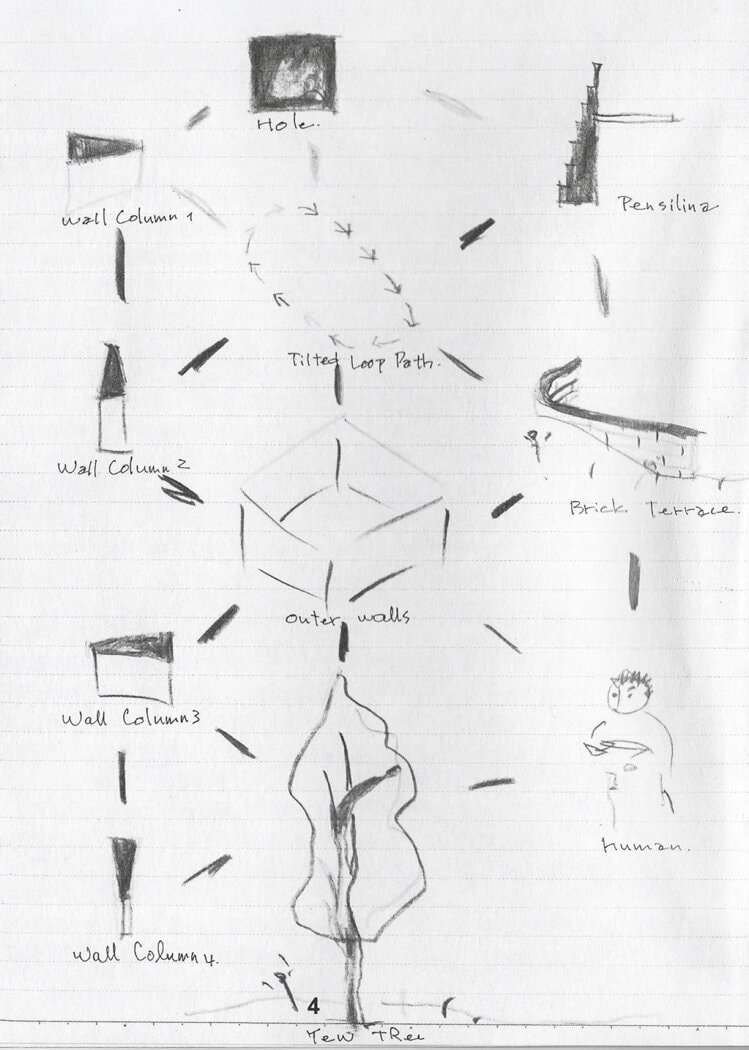 Hole.
Wall Column 1
Pensilina
Tilted Loop Path.
Wall Column 2
Brick Terrace.
outer walls
Wall Column 3
human.
Wall Column 4.
4
Yew tree